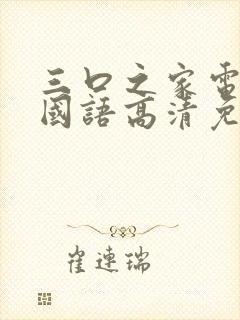 三口之家電
國語高清免
崔連瑞